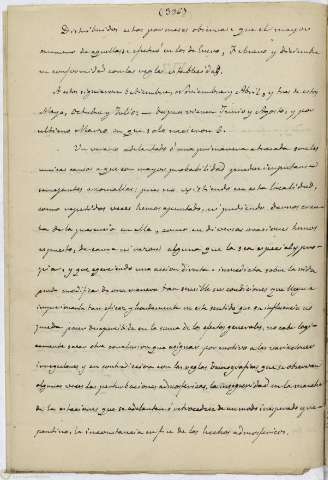 (336)
Distribuidos estos por meses observase que el mayor
numero de aquellos se efectuó en los de Enero, Febrero y Diciembre
en conformidad con las reglas establecidas.
A estos siguieron Setiembre, Noviembre y Abril, y tras de estos
Mayo, Octubre y Julio: despues vienen Junio y Agosto, y por
ultimo Marzo en que solo nacieron 6.
Un verano adelantado ó una primavera atrasada son las
unicas causas a que con mayor probabilidad pueden imputarse
semejantes anomalias; pues no existiendo en esta localidad,
como repetidas veces hemos apuntado, ni pudiendo darnos cuenta
de la presencia en ella, como en diversas ocasiones hemos
expuesto, de causa ni razon alguna que la sea especial y pro-
pia, y que ejerciendo una accion directa e inmediata sobre la vida
pueda modificar de una manera tan sensible sus condiciones que llegue a
imprimirla tan eficaz y hondamente en este sentido que su influencia no
pueda pasar desapercibida en la suma de los efectos generales, no cabe logi-
camente sacar otra conclusion que asignar por motivo a las variaciones
irregulares y en contradiccion con las reglas demograficas que se observan
algunas veces las perturbaciones admosfericas, la inseguridad en la marcha
de las estaciones que se adelantan ó retroceden de un modo inesperado y re-
pentino, la inconstancia en fin de los hechos admosfericos.